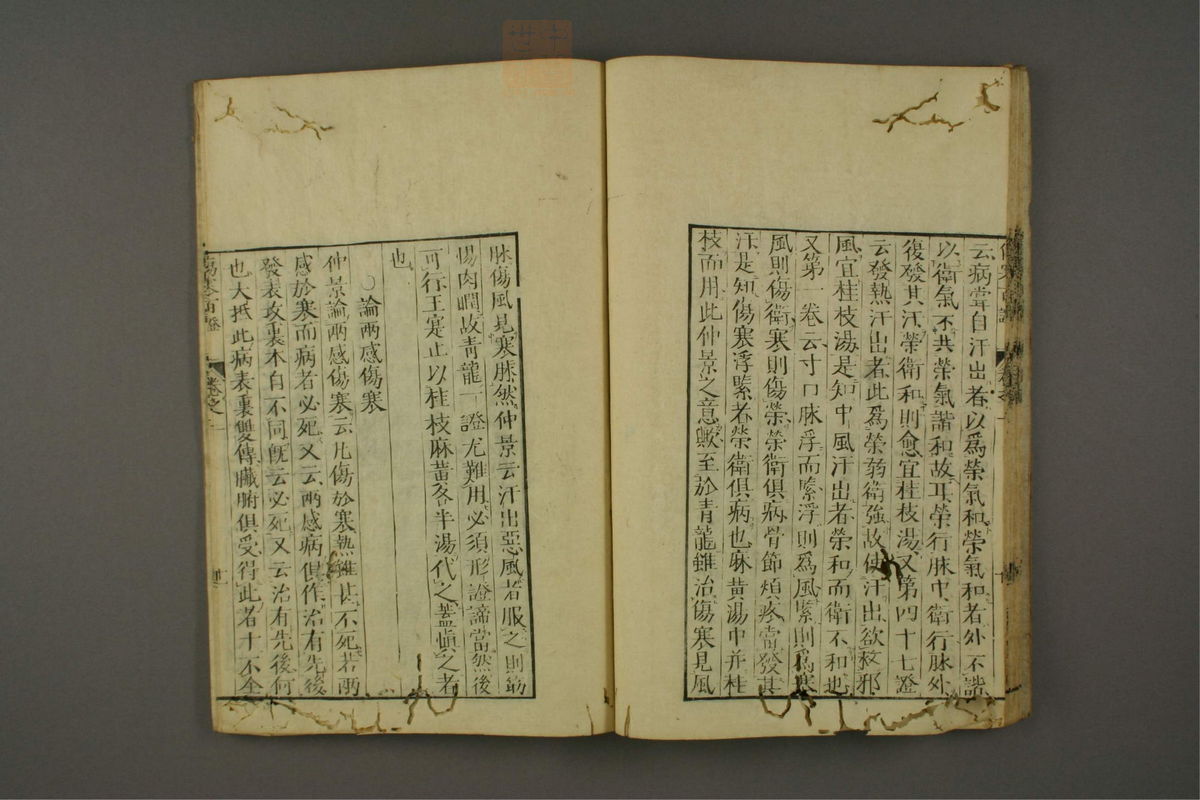 云病常自汗出者以爲榮氣和榮氣和者外不諧
以衛氣不共榮氣諧和故耳榮行脉中衛行脉外
復發其汗榮衛和則愈宜桂枝湯又第四十七證
云發熱汗出者此爲榮弱衛強故使汗出欲救邪
風宜桂枝湯是知中風汗出者榮和而衛不和也
又第一卷云寸口脉浮而緊浮則爲風緊則爲寒
風則傷衛寒則傷榮榮衛俱病骨節煩疼當發其
汗是知傷寒浮緊者榮衛俱病也麻黃湯中并桂
枝而用此仲景之意歟至於青龍雖治傷寒見風
脉傷風見寒脉然仲景云汗出惡風者服之則筋
惕肉瞤故青龍一證尤難用必須形證諦當然後
可行王寔止以桂枝麻黃各半湯代之蓋慎之者
也
○論兩感傷寒
仲景論兩感傷寒云凡傷於寒熱雖甚不死若兩
感於寒而病者必死又云兩感病俱作治有先後
發表攻裏本自不同旣云必死又云治有先後何
也大抵此病表裏雙傳臟腑俱受得此者十不全